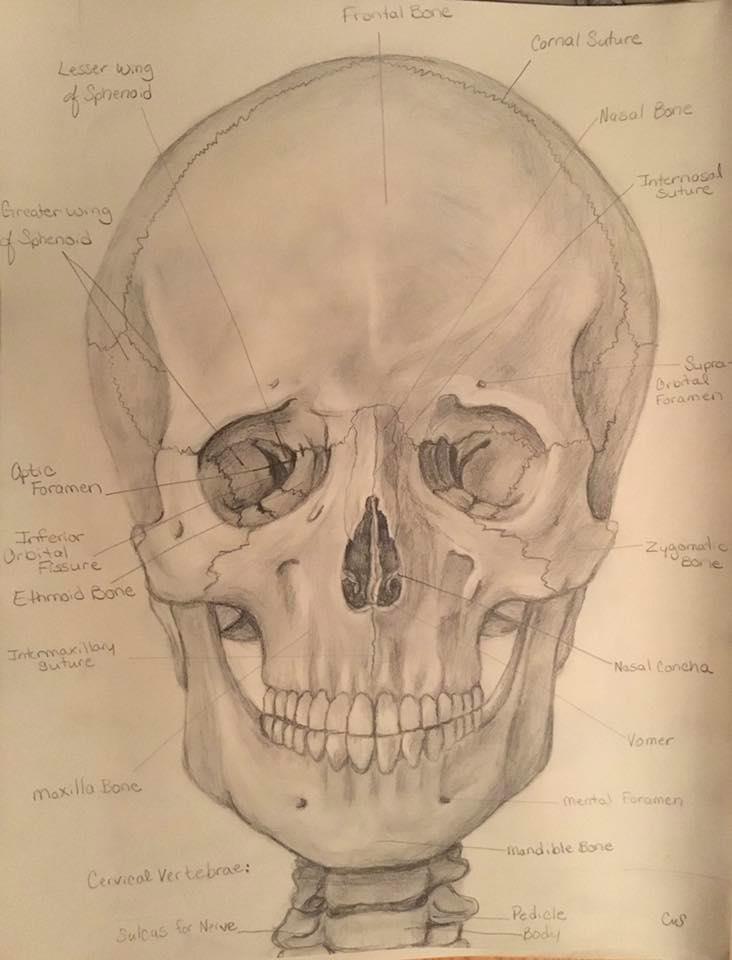 Frontal Bone
Cornal Suture
Lesser wing
of Sphenoid
Nasal Bone
Internasal
Suture
Greater wing
of Sphenoid
Supra-
Orbital
Foramen
Optic
Foramen
Inferior
Orbital
Fissure
Zygomatic
Bone
Ethmoid Bone
Intermaxillary
Suture
Nasal Concha
Vomer
Maxilla Bone
Mental Foramen
Mandible Bone
Cervical Vertebrae:
Pedicle
Sulcus for Nerve
Body
CMS